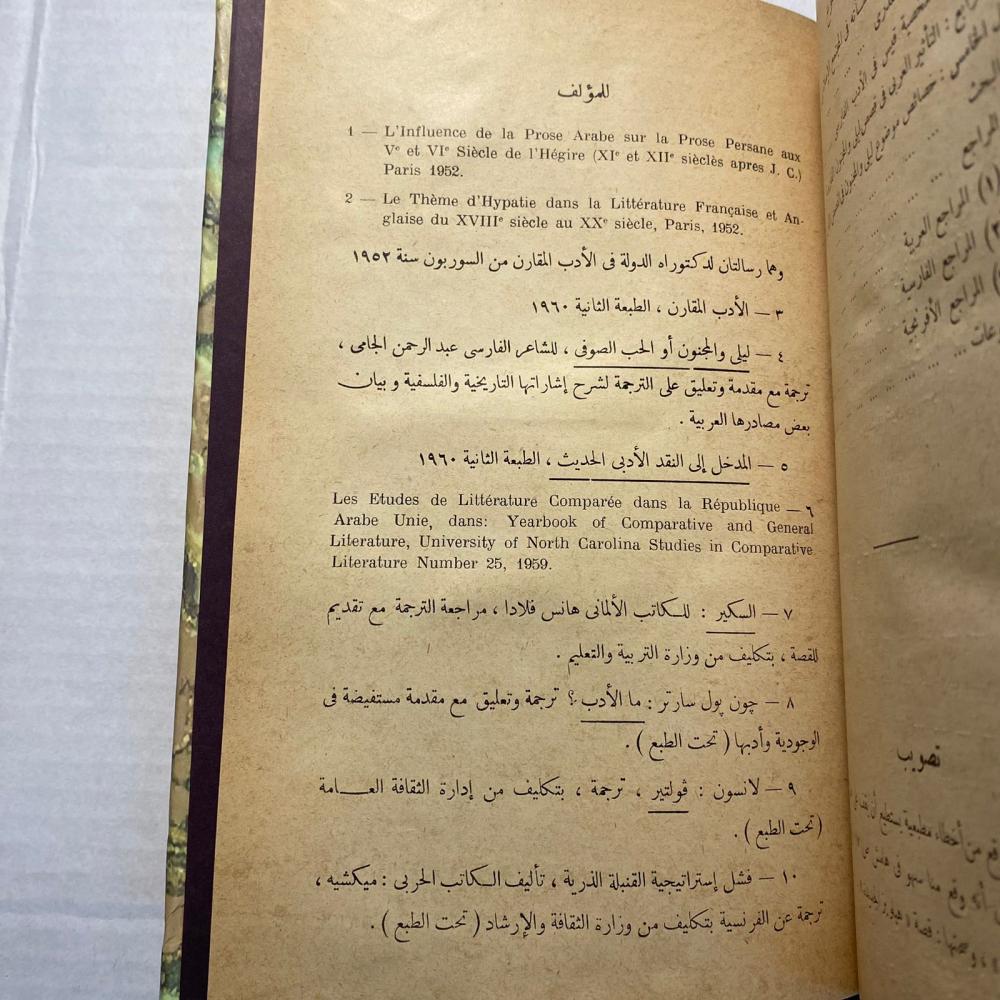 للمؤلف
1 — L'Influence de la Prose Arabe sur la Prose Persane aux
Vᵉ et VIᵉ Siècle de l'Hégire (XIᵉ et XIIᵉ sièclès apres J. C.)
Paris 1952.
2 — Le Thème d'Hypatie dans la Littérature Française et An-
glaise du XVIIIᵉ siècle au XXᵉ siècle, Paris, 1952.
وهما رسالتان لدكتوراه الدولة فى الأدب المقارن من السوربون سنة ١٩٥٢
٣ — الأدب المقارن ، الطبعة الثانية ١٩٦٠
٤ — ليلى والمجنون أو الحب الصوفى ، للشاعر الفارسى عبد الرحمن الجامى ،
ترجمة مع مقدمة وتعليق على الترجمة لشرح إشاراتها التاريخية والفلسفية وبيان
بعض مصادرها العربية .
٥ — المدخل إلى النقد الأدبى الحديث ، الطبعة الثانية ١٩٦٠
٦ — Les Etudes de Littérature Comparée dans la République
Arabe Unie, dans: Yearbook of Comparative and General
Literature, University of North Carolina Studies in Comparative
Literature Number 25, 1959.
٧ — السكير : للكاتب الألمانى هانس فلادا ، مراجعة الترجمة مع تقديم
للقصة ، بتكليف من وزارة التربية والتعليم .
٨ — چون پول سارتر : ما الأدب ؟ ترجمة وتعليق مع مقدمة مستفيضة فى
الوجودية وأدبها ( تحت الطبع ) .
٩ — لانسون : ڤولتير ، ترجمة ، بتكليف من إدارة الثقافة العـــامة
( تحت الطبع ) .
١٠ — فشل إستراتيجية القنبلة الذرية ، تأليف الكاتب الحربى : ميكشيه ،
ترجمة عن الفرنسية بتكليف من وزارة الثقافة والإرشاد ( تحت الطبع ) .
المراجع
(١) المراجع العربية
المراجع الفارسية
المراجع الأفرنجية
تصويب